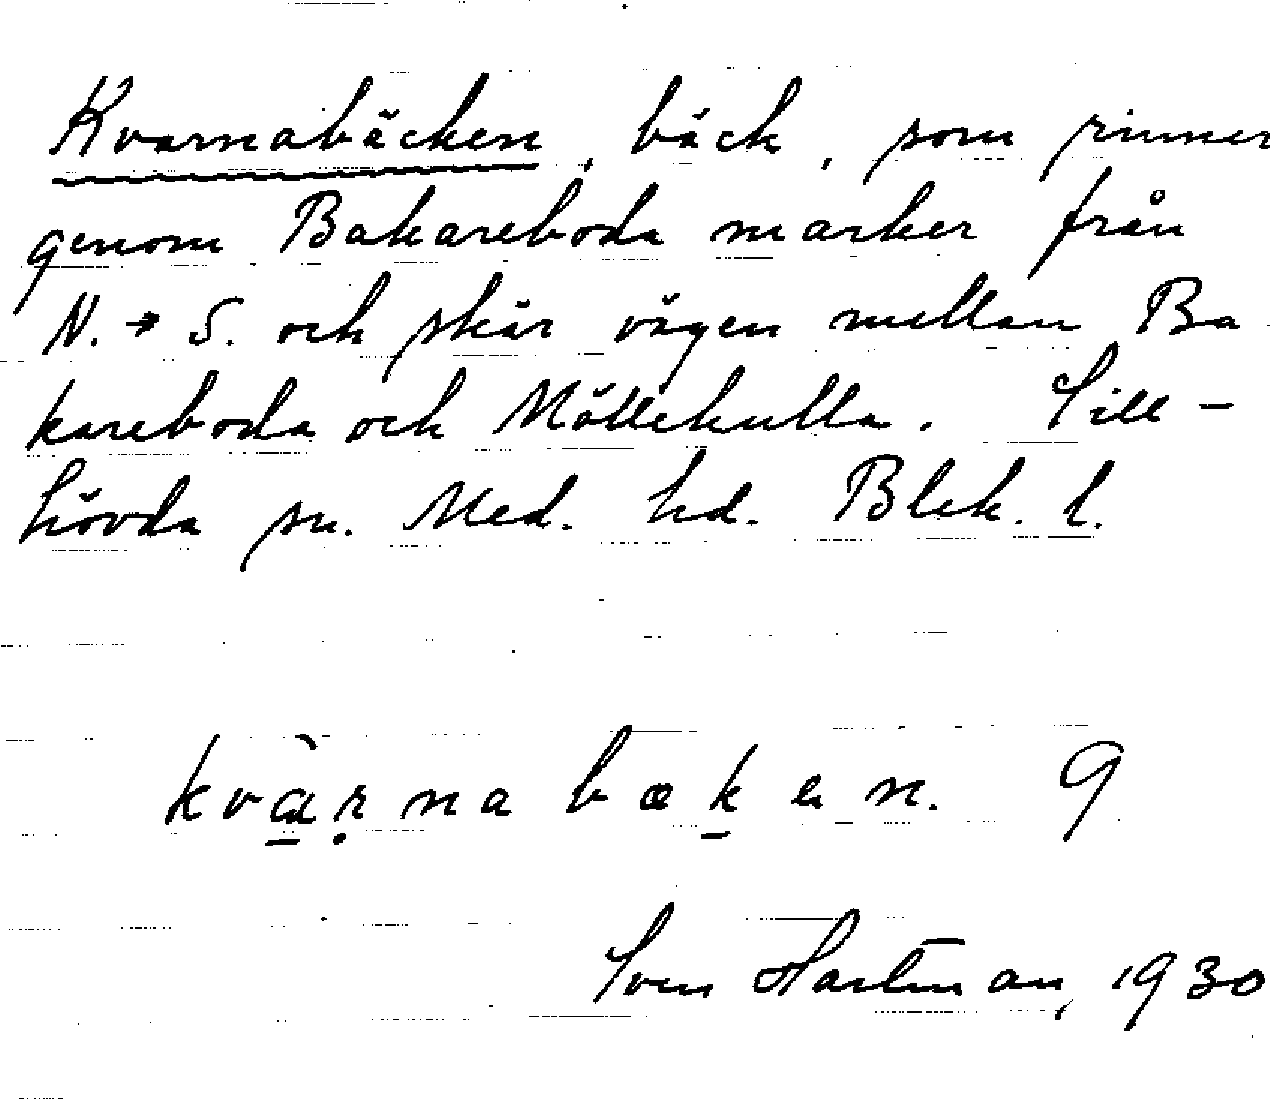 Kvarnabäcken, bäck, som rinner
genom Bakareboda marker från
N. → S. och skär vägen mellan Ba
kareboda och Möllekulla. Till-
hövda sn. Med. hd. Blek. l.
kvàṛnabæken. 9
Sven Hartman, 1930